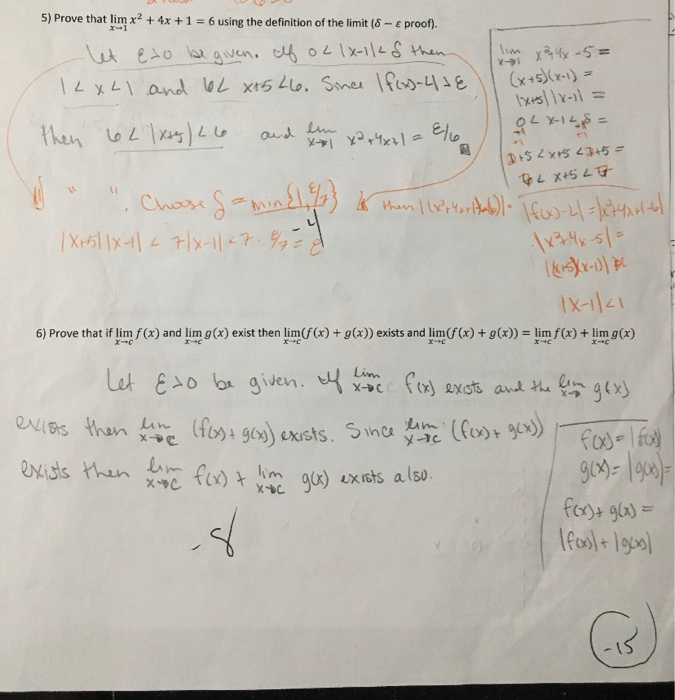 5) Prove that lim x→1 x² + 4x + 1 = 6 using the definition of the limit (δ − ε proof).
Let ε>0 be given. If 0 < |x-1| < δ then
1 < x < 1 and 6 < x+5 < 6. Since |f(x)-L| > ε
then 6 < |x+5| < 6 and lim x→1 x²+4x+1 = ε/6
lim x→1 x²+4x -5 =
(x+5)(x-1) =
|x+5||x-1| =
0 < x-1 < δ =
+1 +1
+5 < x+5 < +5 =
< x+5 < 7
" ". Choose δ = min{1, ε/7} then
|f(x)-L| = |x²+4x+1-6|
|x+5||x-1| < 7|x-1| < 7 · ε/7 = ε
-4
|x²+4x-5| =
|(x+5)(x-1)|
|x-1|<1
6) Prove that if lim x→c f(x) and lim x→c g(x) exist then lim x→c (f(x) + g(x)) exists and lim x→c (f(x) + g(x)) = lim x→c f(x) + lim x→c g(x)
Let ε>0 be given. If lim x→c f(x) exists and the lim g(x)
exists then lim x→c (f(x)+g(x)) exists. Since lim x→c (f(x)+g(x))
exists then lim x→c f(x) + lim x→c g(x) exists also.
f(x)=|f(x)|
g(x)=|g(x)|=
f(x)+g(x) =
|f(x)|+|g(x)|
-8
-15